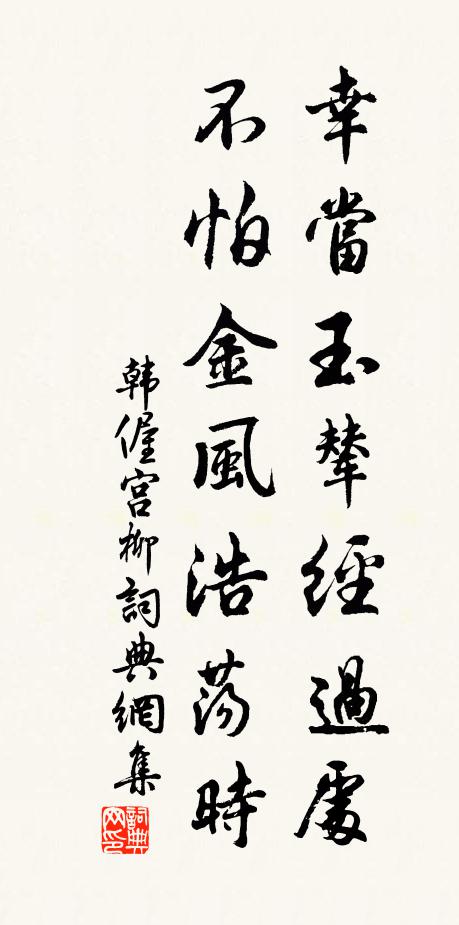 幸當玉輦經過處
不怕金風浩蕩時
韩偓宫柳詞典網集
詞典网印